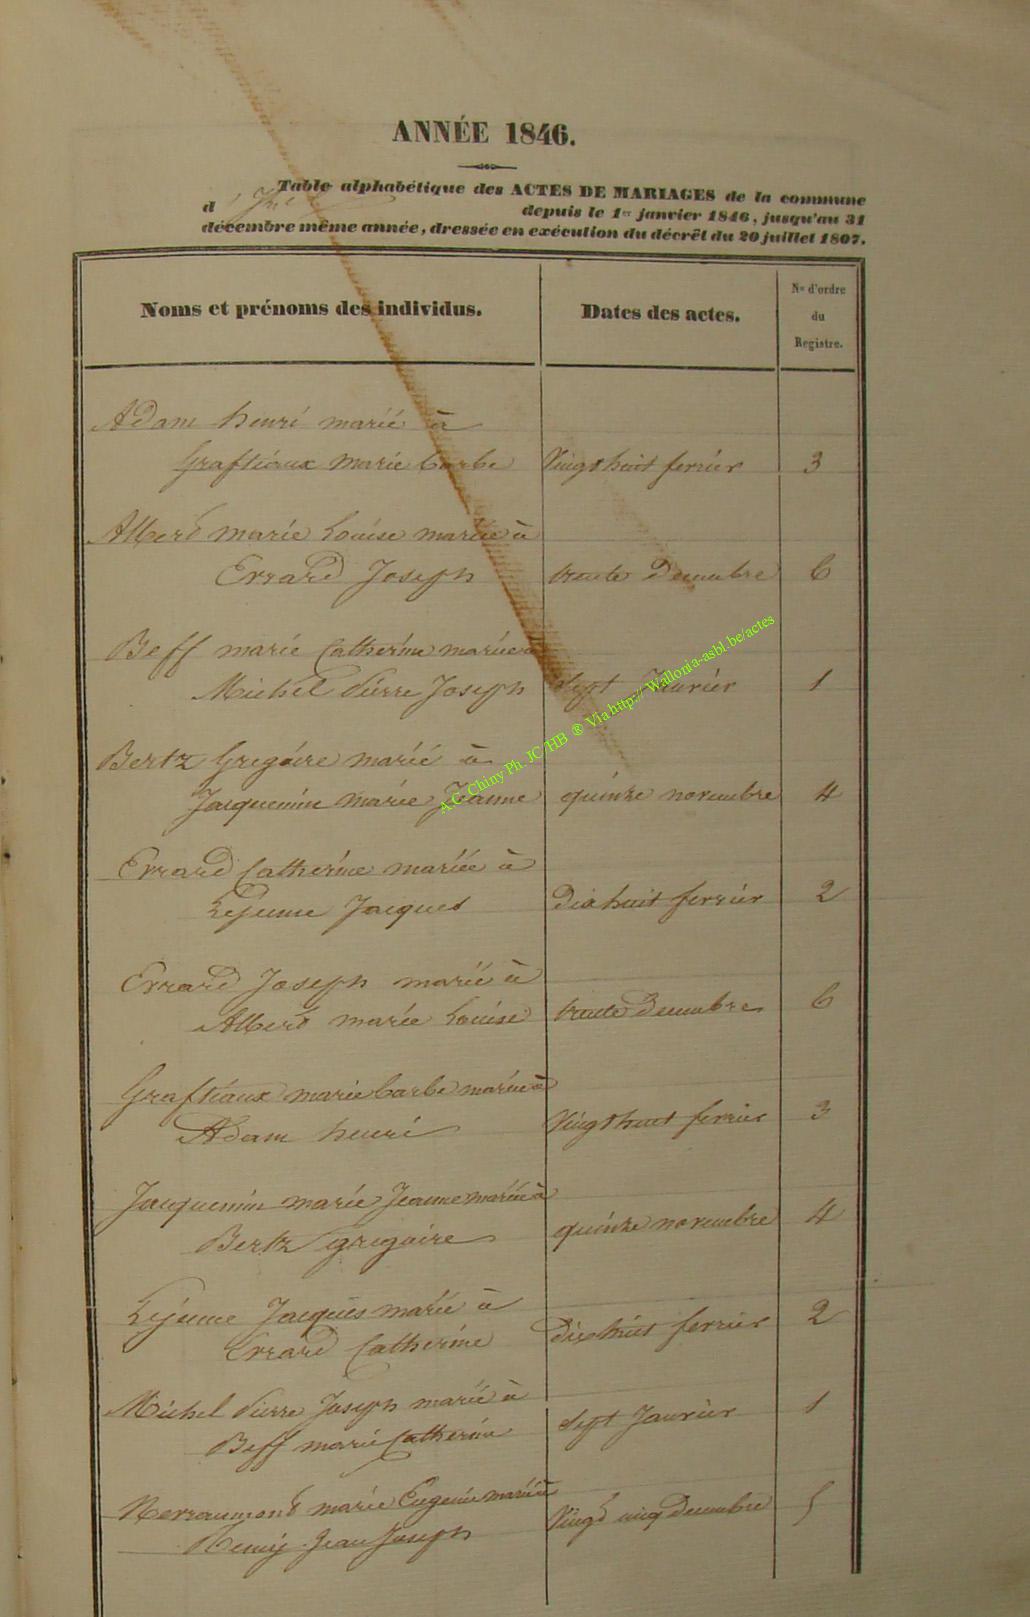 ANNÉE 1846.
Table alphabétique des ACTES DE MARIAGES de la commune
d' depuis le 1er janvier 1846, jusqu'au 31
décembre même année, dressée en exécution du décrêt du 20 juillet 1807.
Noms et prénoms des individus. Dates des actes. No d'ordre du Registre.
Adam henri marié à
Graftiaux marie barbe Vingt huit fevrier 3
Albert marie Louise mariée à
Errard Joseph trente Decembre 6
Beff marie Catherine mariée à
Michel Pierre Joseph Sept Janvier 1
Bertz Gregoire marié à
Jacquemin marie Jeanne quinze novembre 4
Errard Catherine mariée à
Lejeune Jacques Dix huit fevrier 2
Errard Joseph marié à
Albert marie Louise trente Decembre 6
Graftiaux marie barbe mariée à
Adam henri Vingt huit fevrier 3
Jacquemin marie Jeanne mariée à
Bertz gregoire quinze novembre 4
Lejeune Jacques marié à
Errard Catherine dix huit fevrier 2
Michel Pierre Joseph marié à
Beff marie Catherine Sept Janvier 1
marie Eugenie mariée à
Remij Jean Joseph Vingt cinq Decembre 5
A.C. Chiny Ph. JC/HB ® Via http://Wallonia-asbl.be/actes